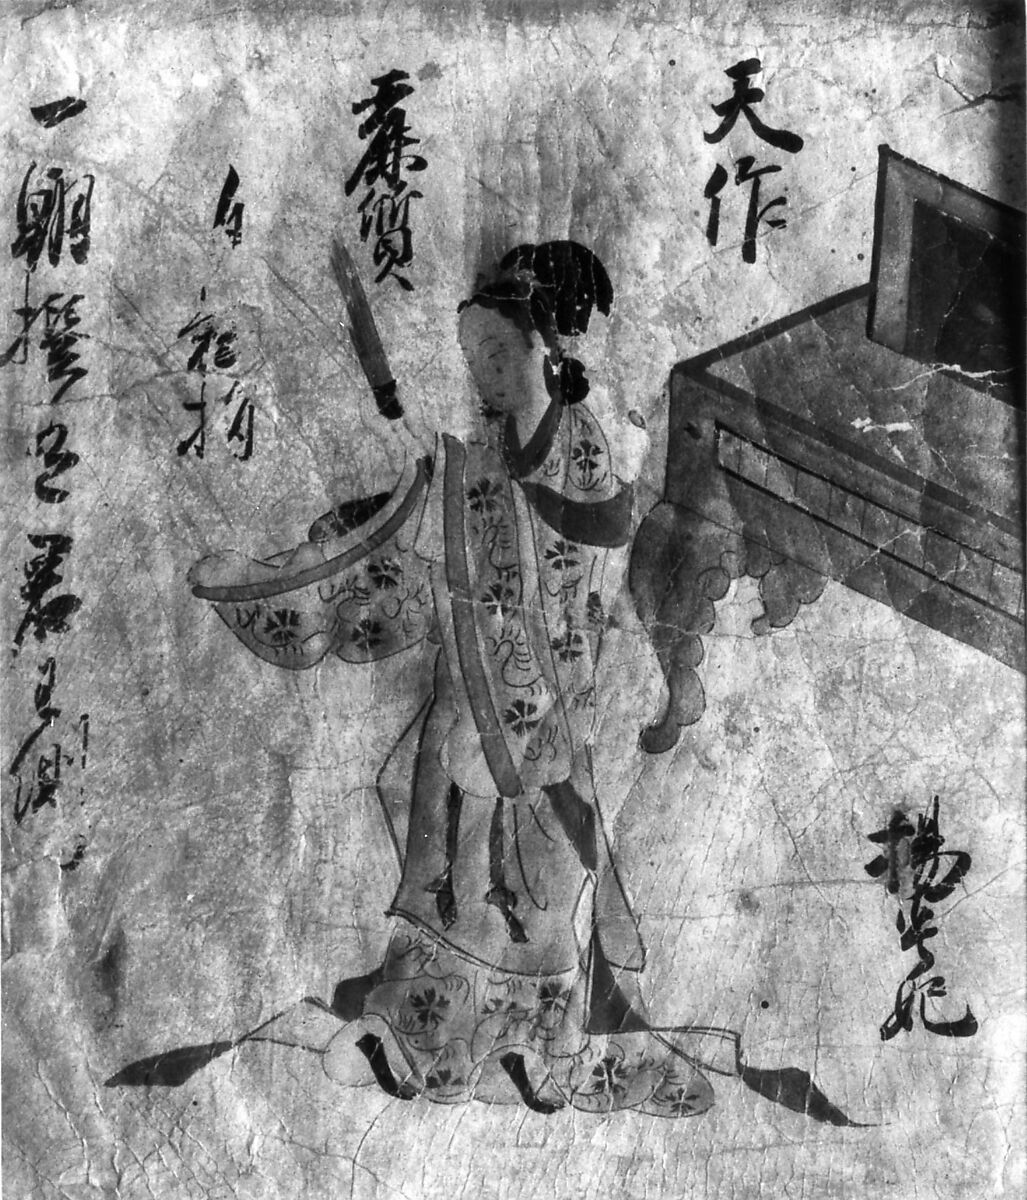 楊貴妃
天作
麗質
自難捐
一朝撰在君王側